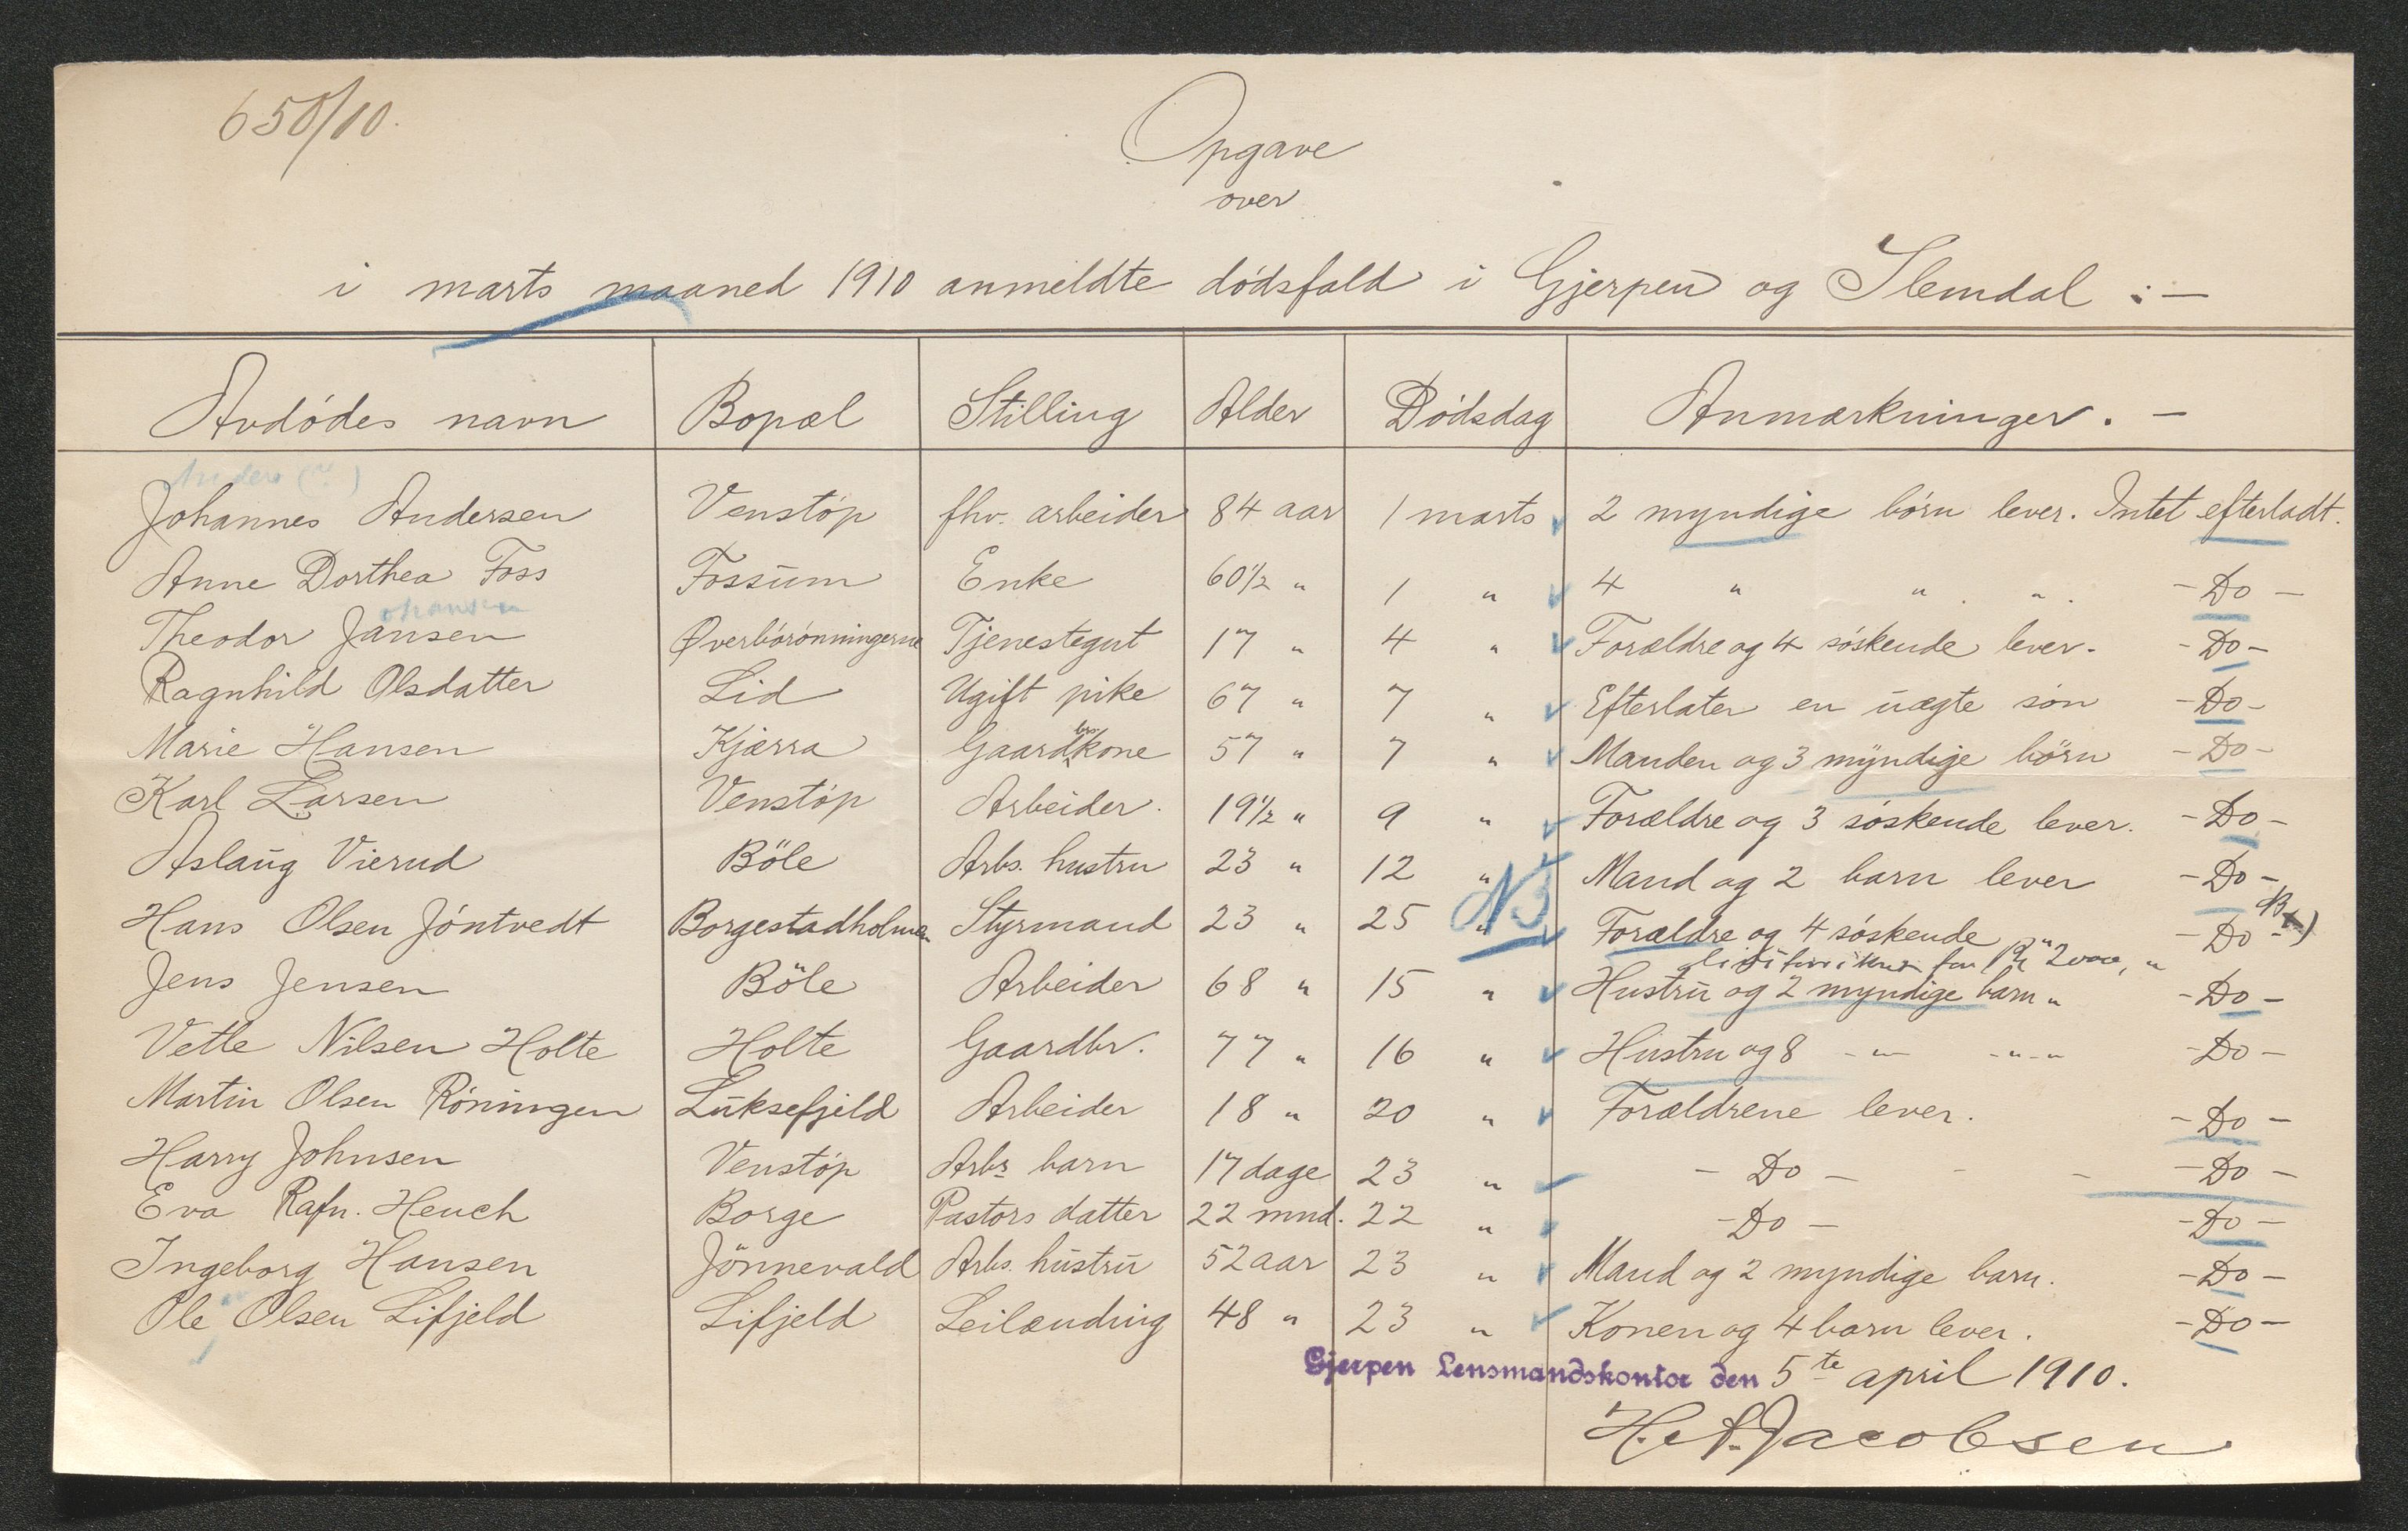 650/10.
Opgave
over
i marts maaned 1910 anmeldte dödsfald i Gjerpen og Slemdal :-
Avdödes navn Bopæl Stilling Alder Dödsdag Anmærkninger. -
Anders (?)
Johannes Andersen Venstöp fhv. arbeider 84 aar 1 marts 2 myndige börn lever. Intet efterladt.
Anne Dorthea Foss Fossum Enke 60 1/2 " 1 " 4 " " . " . - Do -
ohansen
Theodor Jansen Øverbörönningerne Tjenestegut 17 " 4 " Forældre og 4 söskende lever. - Do -
Ragnhild Olsdatter Lid Ugift pike 67 " 7 " Efterlater en uægte sön - Do -
Marie Hansen Kjærra Gaardbrs kone 57 " 7 " Manden og 3 myndige börn - Do -
Karl Larsen Venstöp Arbeider. 19 1/2 " 9 " Forældre og 3 söskende lever. - Do -
Aslaug Vierud Böle Arbs. hustru 23 " 12 " Mand og 2 barn lever - Do -
Hans Olsen Jöntvedt Borgestadholmen Styrmand 23 " 25 " NB Forældre og 4 söskende - Do -
for Kr 2000,"
Jens Jensen Böle Arbeider 68 " 15 " Hustru og 2 myndige barn " - Do -
Vetle Nilsen Holte Holte Gaardbr. 77 " 16 " Hustru og 8 -"- -"-" - Do -
Martin Olsen Röningen Luksefjeld Arbeider 18 " 20 " Forældrene lever. - Do -
Harry Johnsen Venstöp Arbs barn 17 dage 23 " - Do - - - - Do -
Eva Rafn. Heuch Borge Pastors datter 22 mnd. 22 " - Do - - Do -
Ingeborg Hansen Jönnevald Arbs. hustru 52 aar 23 " Mand og 2 myndige barn. - Do -
Ole Olsen Lifjeld Lifjeld Leilænding 48 " 23 " Konen og 4 barn lever. - Do -
Gjerpen Lensmandskontor den 5te april 1910.
H. A. Jacobsen